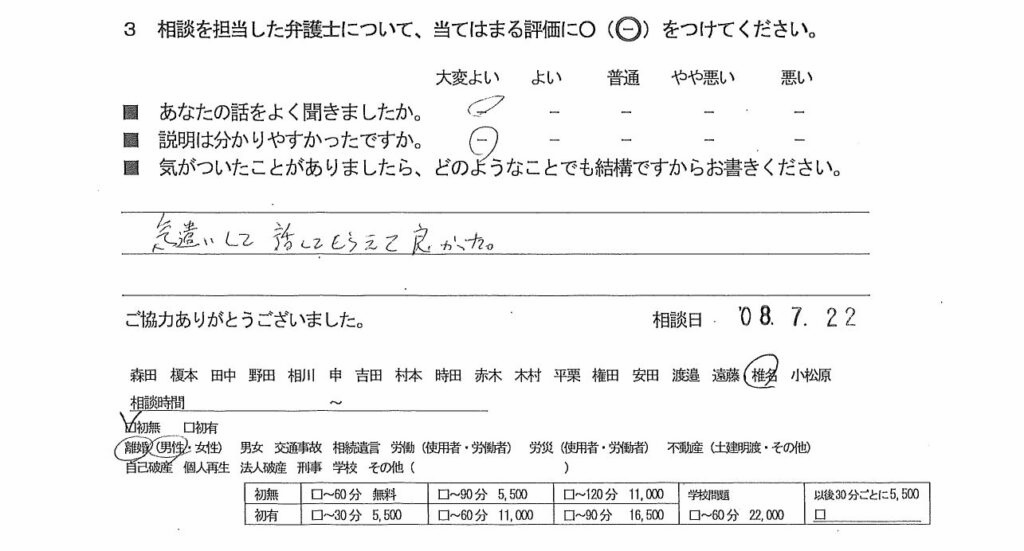 3 相談を担当した弁護士について、当てはまる評価に○（㊀）をつけてください。
大変よい よい 普通 やや悪い 悪い
■ あなたの話をよく聞きましたか。 － － － － －
■ 説明は分かりやすかったですか。 － － － － －
■ 気がついたことがありましたら、どのようなことでも結構ですからお書きください。
気遣いして話してもらえて良かった。
ご協力ありがとうございました。 相談日 '08.7.22
森田 榎本 田中 野田 相川 申 吉田 村本 時田 赤木 木村 平栗 権田 安田 渡邉 遠藤 椎名 小松原
相談時間 ～
□初無 □初有
離婚（男性・女性） 男女 交通事故 相続遺言 労働（使用者・労働者） 労災（使用者・労働者） 不動産（土建明渡・その他）
自己破産 個人再生 法人破産 刑事 学校 その他（ ）
初無 □～60分 無料 □～90分 5,500 □～120分 11,000 学校問題 以後30分ごとに5,500
初有 □～30分 5,500 □～60分 11,000 □～90分 16,500 □～60分 22,000 □